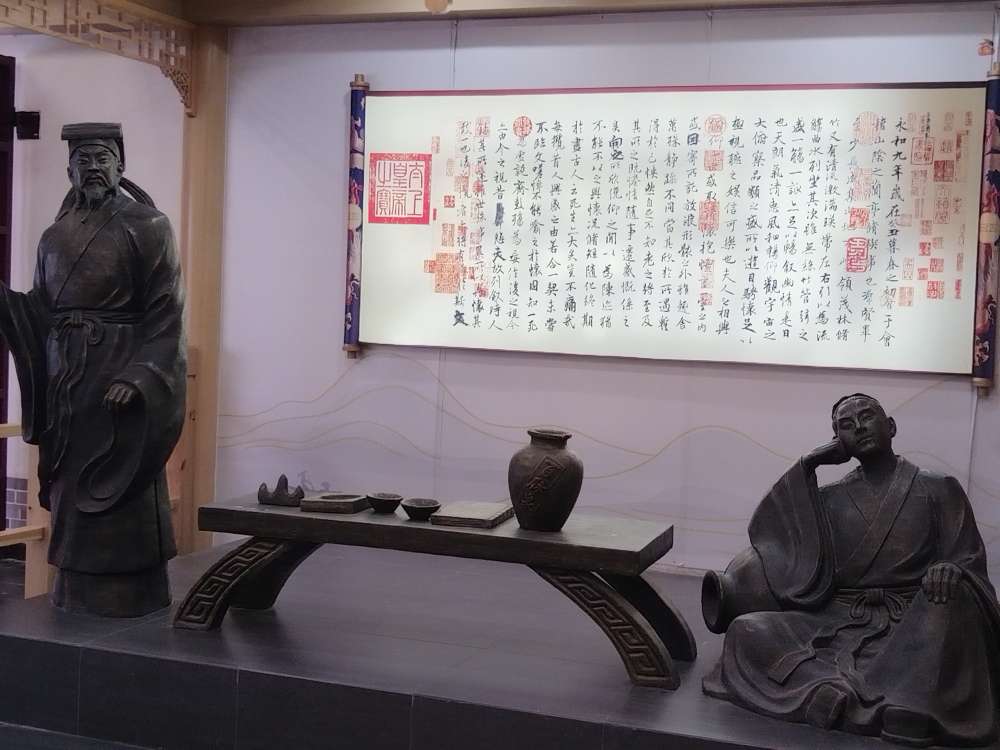 永和九年歲在癸丑暮春之初會于會
稽山陰之蘭亭脩稧事也羣賢畢
少長咸集 領茂林脩
竹又有清流激湍暎帶左右引以為流
觴曲水列坐其次雖無絲竹管弦之
盛一觴一詠亦足以暢敘幽情是日
也天朗氣清惠風和暢仰觀宇宙之
大俯察品類之盛所以遊目騁懷足以
極視聽之娛信可樂也夫人之相與
俯仰一世或取諸懷抱悟言一室之內
或因寄所託放浪形骸之外雖趣舍
萬殊靜躁不同當其欣於所遇暫
得於己怏然自足不知老之將至及
其所之既惓情隨事遷感慨係之
矣向之所欣俛仰之間以為陳迹猶
不能不以之興懷況脩短隨化終期
於盡古人云死生亦大矣豈不痛哉
每攬昔人興感之由若合一契未嘗
不臨文嗟悼不能喻之於懷固知一死
生為虛誕齊彭殤為妄作後之視今
亦由今之視昔悲夫故列敘時人
錄其所述雖世殊事異所以興懷其
致一也後之攬者亦將有感於斯文
太上皇帝之寶